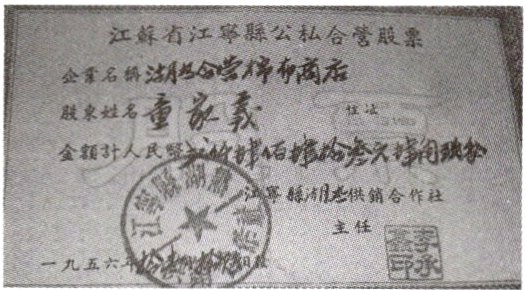 江蘇省江寧縣公私合營股票
企業名稱湖熟合營棉布商店
股東姓名童家義 住址
金額計人民幣 仟肆佰肆拾叁元肆角 分
江寧縣湖熟供銷合作社
主任
一九五六年拾 月 日